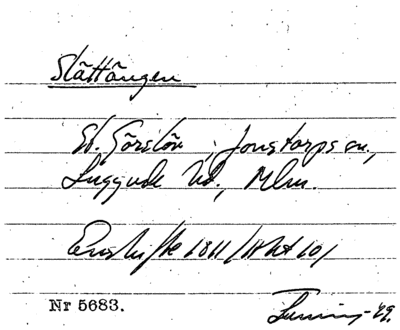 Slättängen
St. Görslöv, Jonstorps sn.,
Luggude hd., Mlm.
Enskifte 1811 (Akt 10)
Nr 5683.